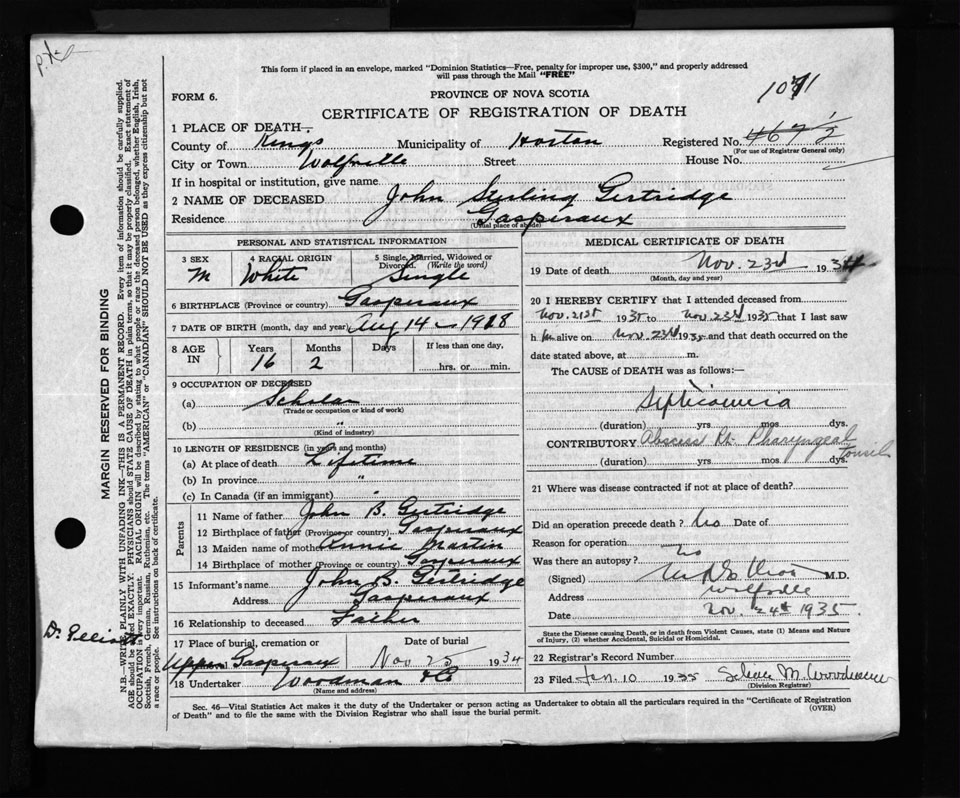 This form if placed in an envelope, marked "Dominion Statistics—Free, penalty for improper use, $300," and properly addressed
will pass through the Mail "FREE"
FORM 6.
PROVINCE OF NOVA SCOTIA
1071
CERTIFICATE OF REGISTRATION OF DEATH
1 PLACE OF DEATH—
County of Kings Municipality of Horton Registered No. 467 1/2
(For use of Registrar General only)
City or Town Wolfville Street House No.
If in hospital or institution, give name
2 NAME OF DECEASED John Sterling Gertridge
Residence Gaspereaux
(Usual place of abode)
PERSONAL AND STATISTICAL INFORMATION
3 SEX 4 RACIAL ORIGIN 5 Single, Married, Widowed or Divorced. (Write the word)
M White Single
6 BIRTHPLACE (Province or country) Gaspereaux
7 DATE OF BIRTH (month, day and year) Aug 14 - 1918
8 AGE IN Years Months Days If less than one day,
16 2 hrs. or min.
9 OCCUPATION OF DECEASED
(a) Scholar
(Trade or occupation or kind of work)
(b) "
(Kind of industry)
10 LENGTH OF RESIDENCE (in years and months)
(a) At place of death Lifetime
(b) In province "
(c) In Canada (if an immigrant) "
Parents
11 Name of father John B. Gertridge
12 Birthplace of father (Province or country) Gaspereaux
13 Maiden name of mother Annie Martin
14 Birthplace of mother (Province or country) Gaspereaux
15 Informant's name John B. Gertridge
Address Gaspereaux
16 Relationship to deceased Father
17 Place of burial, cremation or Date of burial
Upper Gaspereaux Nov 25 1934
18 Undertaker Woodman & Co
(Name and address)
MEDICAL CERTIFICATE OF DEATH
19 Date of death Nov. 23rd 1934
(Month, day and year)
20 I HEREBY CERTIFY that I attended deceased from
Nov. 21st 1935 to Nov. 23rd 1935 that I last saw
h im alive on Nov. 23rd 1935 and that death occurred on the
date stated above, at m.
The CAUSE of DEATH was as follows:—
Septicaemia
(duration) yrs mos dys.
CONTRIBUTORY Abscess Rt. Pharyngeal Tonsil
(duration) yrs mos dys.
21 Where was disease contracted if not at place of death?
Did an operation precede death? No Date of
Reason for operation
Was there an autopsy? No
(Signed) M.D.
Address Wolfville
Date Nov. 24th 1935
State the Disease causing Death, or in death from Violent Causes, state (1) Means and Nature
of Injury, (2) whether Accidental, Suicidal or Homicidal.
22 Registrar's Record Number
23 Filed Jan. 10 1935
(Division Registrar)
Sec. 46—Vital Statistics Act makes it the duty of the Undertaker or person acting as Undertaker to obtain all the particulars required in the "Certificate of Registration
of Death" and to file the same with the Division Registrar who shall issue the burial permit.
(OVER)
MARGIN RESERVED FOR BINDING
N.B.—WRITE PLAINLY WITH UNFADING INK—THIS IS A PERMANENT RECORD. Every item of information should be carefully supplied.
AGE should be stated EXACTLY. PHYSICIANS should STATE CAUSE OF DEATH in plain terms, so that it may be properly classified. Exact statement of
OCCUPATION is very important. RACIAL ORIGIN will be described by stating to what people or race the deceased person belonged, whether English, Irish,
Scottish, French, German, Russian, Ruthenian, etc. The terms "AMERICAN" or "CANADIAN" SHOULD NOT BE USED as they express citizenship but not
a race or people. See instructions on back of certificate.
Dr. Elliott